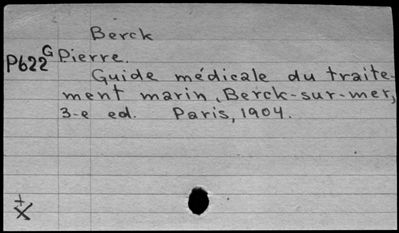 Berck
P622G Pierre.
Guide médicale du traite-
ment marin, Berck-sur-mer,
3-e ed. Paris, 1904.